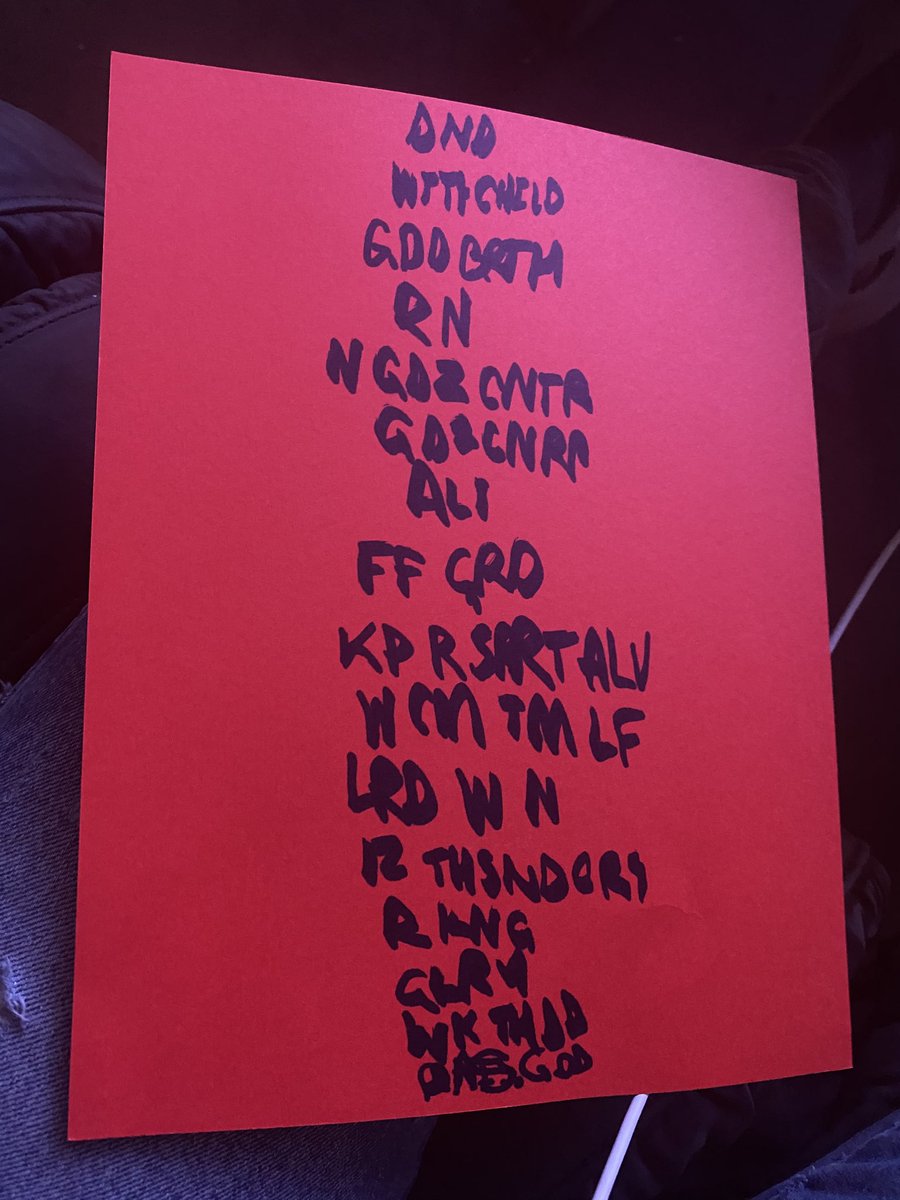 DND
WITHCHILD
GDDBRTH
RN
N GDZ CNTR
GDZCNRN
ALI
FF GRD
KP R SART ALV
W CM TM LF
LRD W N
R THSNDCRY
R KNG
GLRY
WK TH DD
GOD